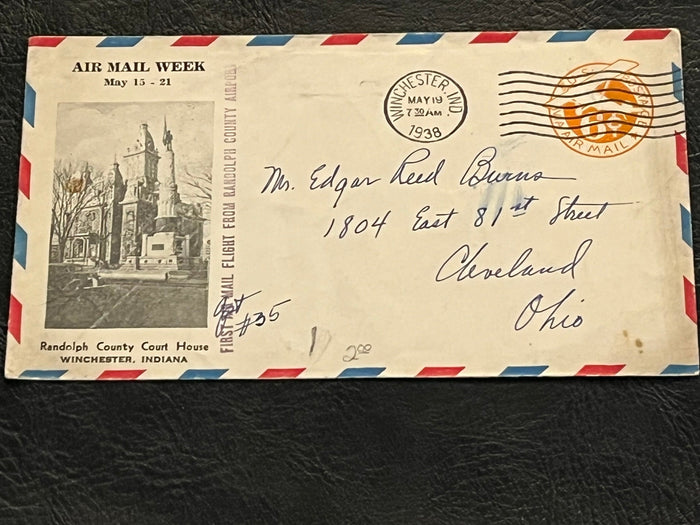 AIR MAIL WEEK
May 15 - 21
Randolph County Court House
WINCHESTER, INDIANA
FIRST AIR MAIL FLIGHT FROM RANDOLPH COUNTY AIRPORT
WINCHESTER, IND.
MAY 19
7 30 AM
1938
U.S. POSTAGE
VIA AIR MAIL
6¢
Mr. Edgar Reed Burns
1804 East 81st Street
Cleveland
Ohio
#35
2.00